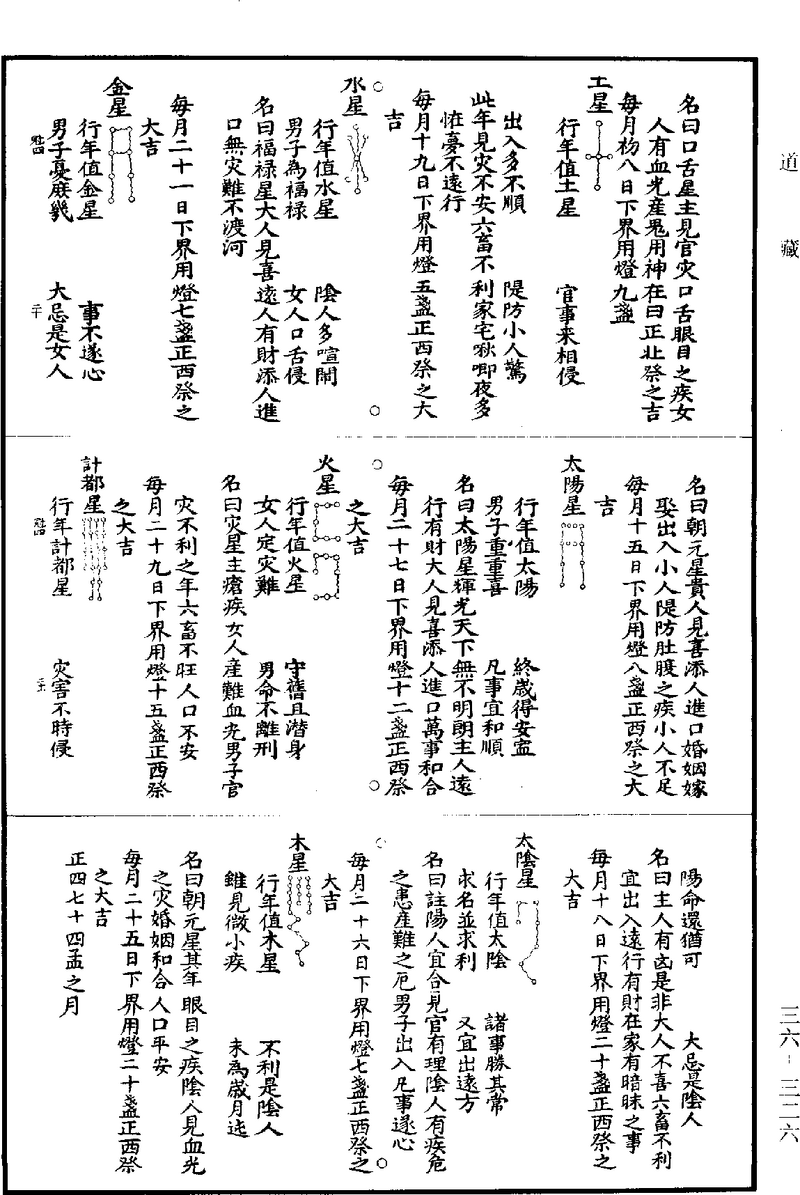 道藏
三六-三二六
名曰口舌星主見官灾口舌眼目之疾女
人有血光產鬼用神在曰正北祭之吉
每月初八日下界用燈九盞
土星
行年值土星 官事来相侵
出入多不順 隄防小人驚
此年見灾不安六畜不利家宅啾唧夜多
怪夢不遠行
每月十九日下界用燈五盞正西祭之大
吉
水星
行年值水星 陰人多喧鬧
男子為福禄 女人口舌侵
名曰福禄星大人見喜遠人有財添人進
口無灾難不渡河
每月二十一日下界用燈七盞正西祭之
大吉
金星
行年值金星 事不遂心
男子憂 大忌是女人
名曰朝元星貴人見喜添人進口婚姻嫁
娶出入小人隄防肚腹之疾小人不足
每月十五日下界用燈八盞正西祭之大
吉
太陽星
行年值太陽 終歲得安寍
男子重重喜 凡事宜和順
名曰太陽星輝光天下無不明朗主人遠
行有財大人見喜添人進口萬事和合
每月二十七日下界用燈十二盞正西祭
之大吉
火星
行年值火星 守舊且潜身
女人定灾難 男命不離刑
名曰灾星主瘡疾女人產難血光男子官
灾不利之年六畜不旺人口不安
每月二十九日下界用燈十五盞正西祭
之大吉
計都星
行年計都星 灾害不時侵
陽命還猶可 大忌是陰人
名曰主人有凶是非大人不喜六畜不利
宜出入遠行有財在家有暗昧之事
每月十八日下界用燈二十盞正西祭之
大吉
太陰星
行年值太陰 諸事勝其常
求名並求利 又宜出遠方
名曰註陽人宜合見官有理陰人有疾危
之患產難之厄男子出入凡事遂心
每月二十六日下界用燈七盞正西祭之
大吉
木星
行年值木星 不利是陰人
雖見微小疾 未為歲月迍
名曰朝元星其年眼目之疾陰人見血光
之灾婚姻和合人口平安
每月二十五日下界用燈二十盞正西祭
之大吉
正四七十四孟之月